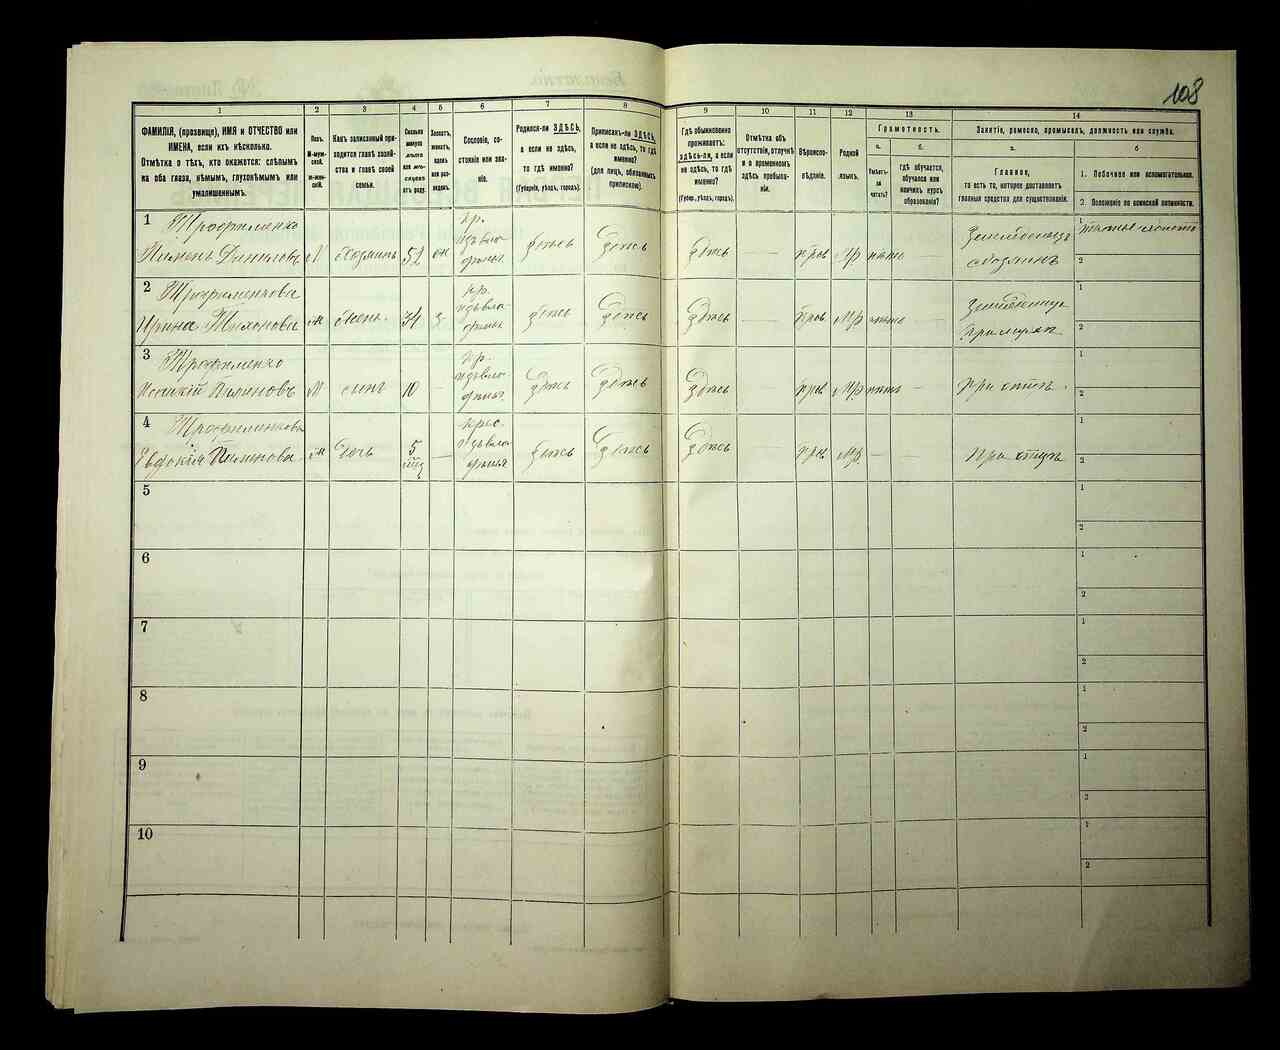 108
1
2
3
4
5
6
7
8
9
10
11
12
13
14
ФАМИЛІЯ, (прозвище), ИМЯ и ОТЧЕСТВО или
ИМЕНА, если ихъ нѣсколько.
Отмѣтка о тѣхъ, кто окажется: слѣпымъ
на оба глаза, нѣмымъ, глухонѣмымъ или
умалишеннымъ.
Полъ.
М-муж-
ской.
ж-жен-
скій.
Какъ записанный при-
ходится главѣ хозяй-
ства и главѣ своей
семьи.
Сколько
минуло
лѣтъ
или мѣ-
сяцевъ
отъ роду.
Холостъ,
женатъ,
вдовъ
или раз-
веденъ.
Сословіе, со-
стояніе или зва-
ніе.
Родился-ли ЗДѢСЬ,
а если не здѣсь,
то гдѣ именно?
(Губернія, уѣздъ, городъ).
Приписанъ-ли ЗДѢСЬ,
а если не здѣсь, то гдѣ
именно?
(для лицъ, обязанныхъ
припискою).
Гдѣ обыкновенно
проживаетъ:
здѣсь-ли, а если
не здѣсь, то гдѣ
именно?
(Губерн., уѣздъ, городъ).
Отмѣтка объ
отсутствіи, отлучкѣ
и о временномъ
здѣсь пребыва-
ніи.
Вѣроиспо-
вѣданіе.
Родной
языкъ.
Грамотность.
а.
Умѣетъ-
ли
читать?
б.
гдѣ обучается,
обучался или
кончилъ курсъ
образованія?
Занятіе, ремесло, промыселъ, должность или служба.
а.
Главное,
то есть то, которое доставляетъ
главныя средства для существованія.
б
1. Побочное или вспомогательное.
2. Положеніе по воинской повинности.
1
Трофименко
Пименъ Даниловъ
М
хозяинъ
52
кр.
здѣсь
здѣсь
здѣсь
прав
Мр
хозяинъ
1
2
2
Трофименкова
Ирина
жена
34
кр.
здѣсь
здѣсь
здѣсь
прав
Мр
1
2
3
Трофименко
Пименовъ
М
сынъ
10
кр.
здѣсь
здѣсь
здѣсь
прав
Мр
при отцѣ
1
2
4
Трофименкова
Евдокія Пименова
дочь
5
крес.
здѣсь
здѣсь
здѣсь
прав
Мр
при отцѣ
1
2
5
1
2
6
1
2
7
1
2
8
1
2
9
1
2
10
1
2